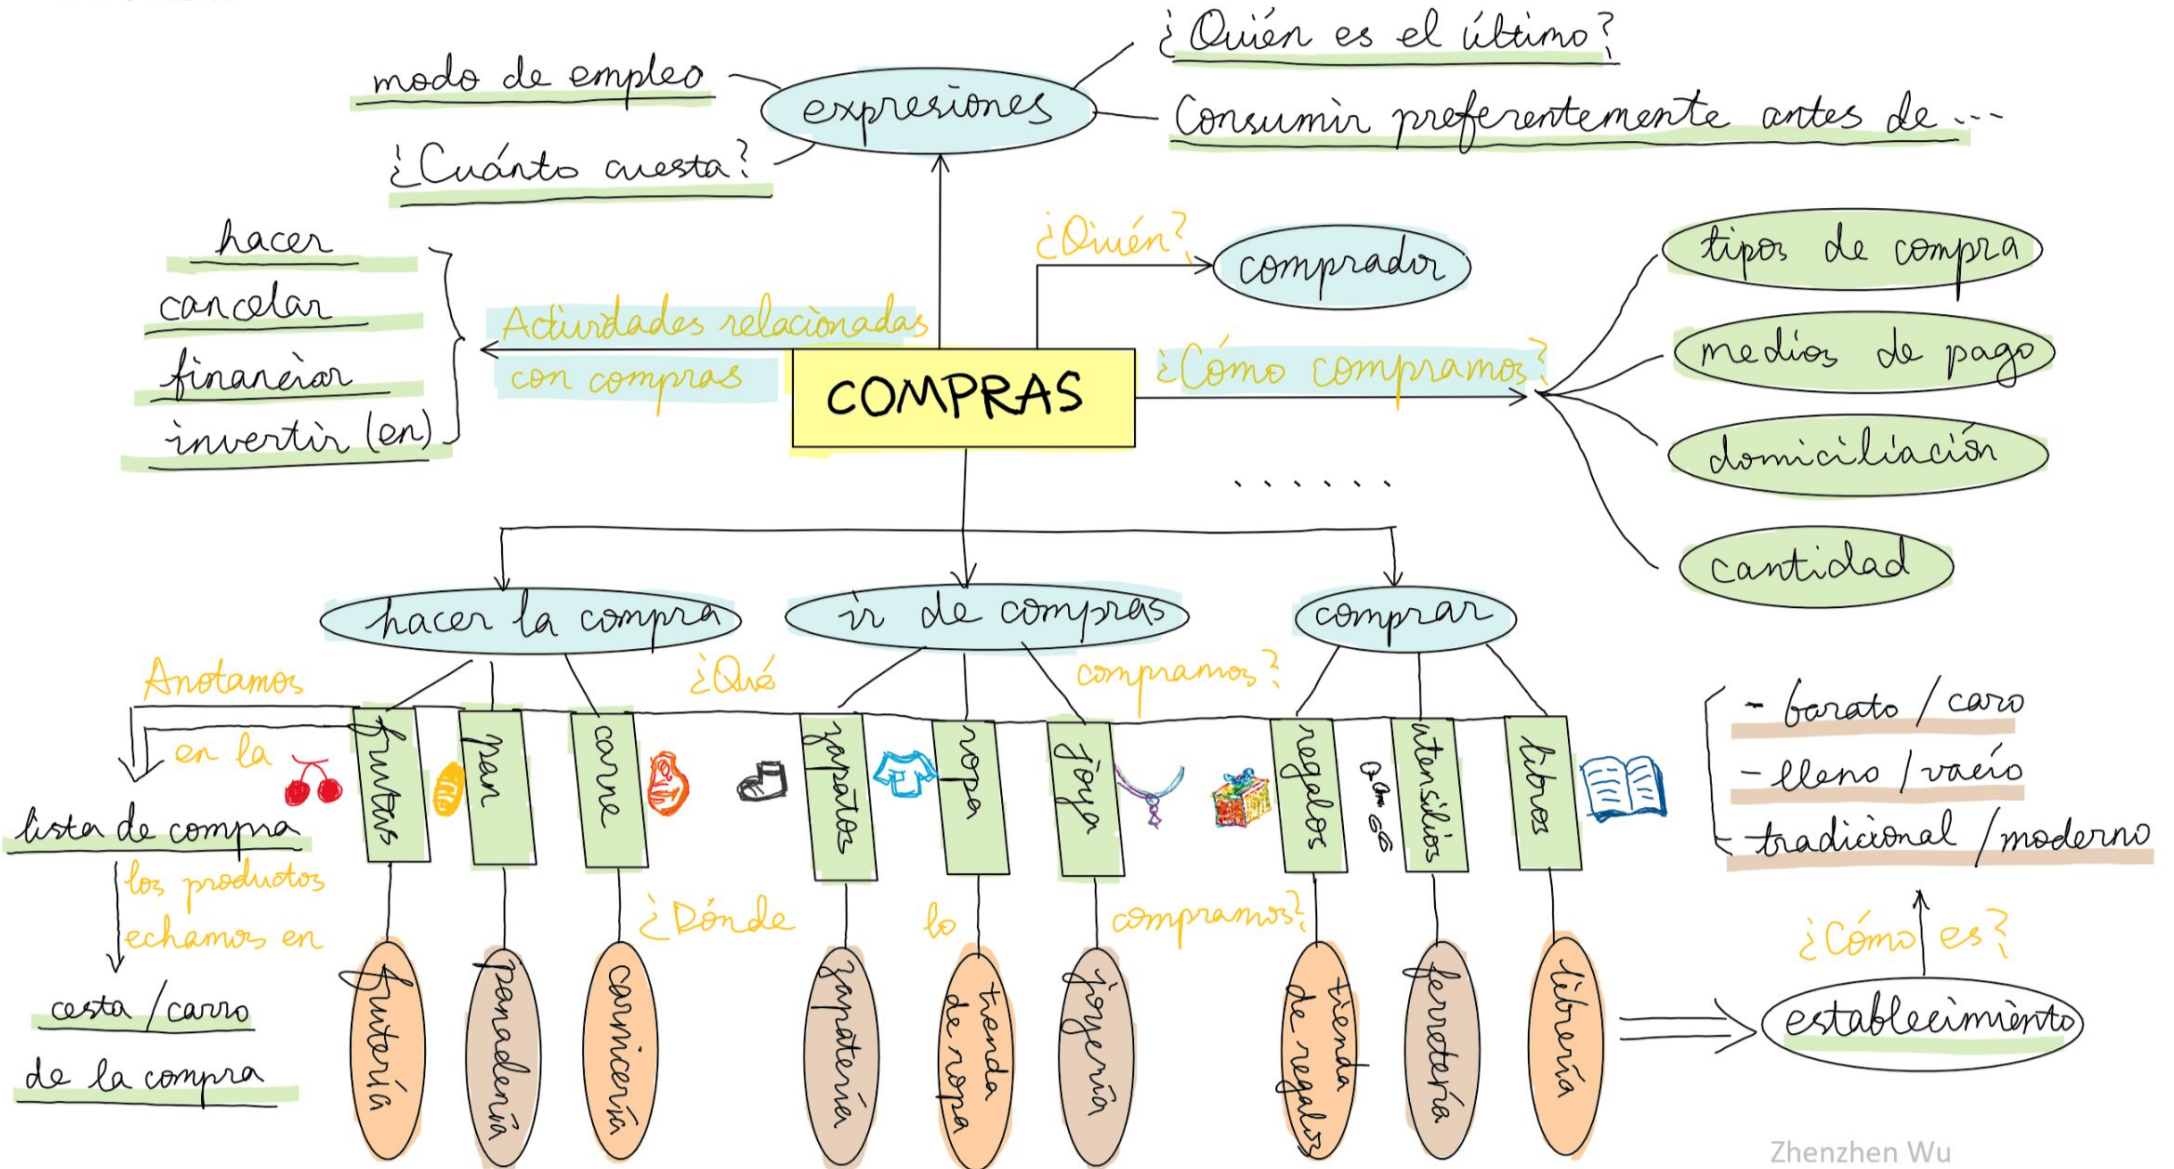 ¿Quién es el último?
modo de empleo
expresiones
Consumir preferentemente antes de ...
¿Cuánto cuesta?
hacer
cancelar
financiar
invertir (en)
Actividades relacionadas
con compras
¿Quién?
comprador
COMPRAS
¿Cómo compramos?
tipos de compra
medios de pago
domiciliación
cantidad
......
hacer la compra
ir de compras
comprar
Anotamos
en la
lista de compra
los productos
echamos en
cesta / carro
de la compra
¿Qué compramos?
frutas
pan
carne
zapatos
ropa
joya
regalos
utensilios
libros
¿Dónde lo compramos?
frutería
panadería
carnicería
zapatería
tienda
de ropa
joyería
tienda
de regalos
ferretería
librería
- barato / caro
- lleno / vacío
- tradicional / moderno
¿Cómo es?
establecimiento
Zhenzhen Wu